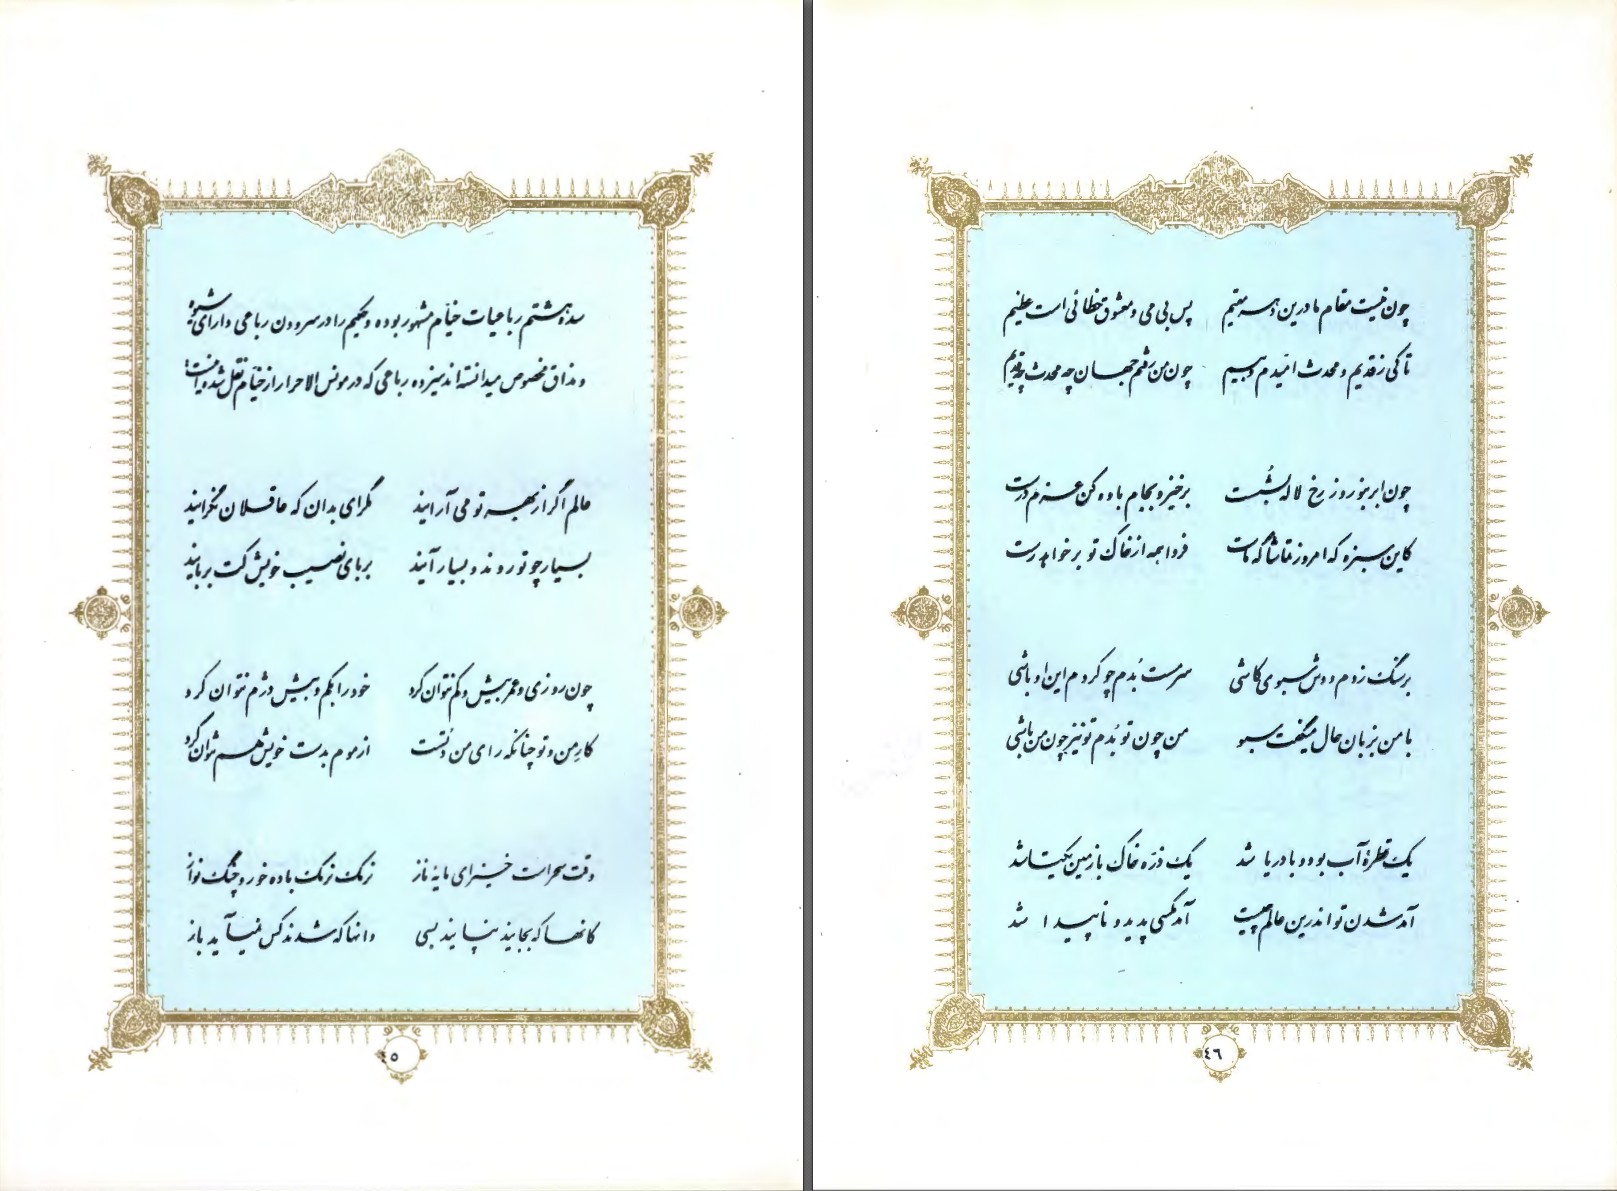 سده هشتم رباعیات خیام مشهور بوده و حکیم را در سرودن رباعی دارای شیوه
و مذاق مخصوص میدانسته‌اند سیزده رباعی که در مونس الاحرار از خیام نقل شده
عالم اگر از بهر تو می آرایند مگرای بدان که عاقلان نگرایند
بسیار چو تو روند و بسیار آیند بربای نصیب خویش کت بربایند
چون روزی و عمر بیش و کم نتوان کرد خود را بکم و بیش دژم نتوان کرد
کار من و تو چنانکه رای من و تست از موم بدست خویش هم نتوان کرد
وقت سحرات خیز ای مایه ناز نرمک نرمک باده خور و چنگ نواز
کانها که بجایند نپایند بسی وانها که شدند کس نمیآید باز
٤٥
چون نیست مقام ما درین دهر مقیم پس بی می و معشوق خطائی است عظیم
تا کی ز قدیم و محدث امیدم و بیم چون من رفتم جهان چه محدث چه قدیم
چون ابر بنوروز رخ لاله بشست برخیز و بجام باده کن عزم درست
کاین سبزه که امروز تماشاگه ماست فردا همه از خاک تو برخواهد رست
بر سنگ زدم دوش سبوی کاشی سرمست بُدم چو کردم این اوباشی
با من بزبان حال میگفت سبو من چون تو بُدم تو نیز چون من باشی
یک قطرهٔ آب بود و با دریا شد یک ذرّه خاک با زمین یکتا شد
آمد شدن تو اندرین عالم چیست آمد مگسی پدید و ناپیدا شد
٤٦